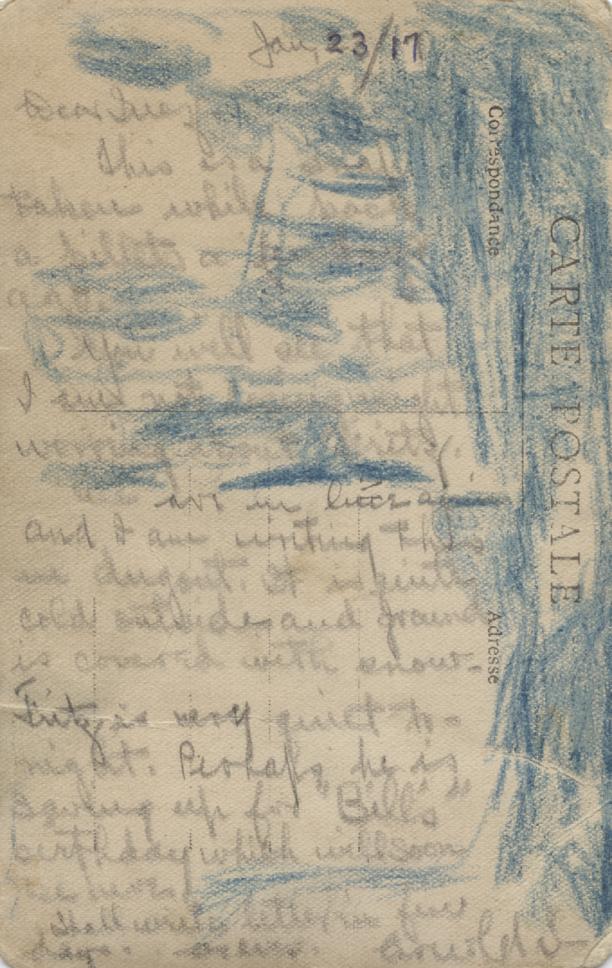 Jan, 23/17
Dear Inez,
This is a snap
taken while back
a billets
You will see that
I am not
worrying about
We are in line again
and I am writing this
in dugout. It is pretty
cold outside and ground
is covered with snow.
Fritz is very quiet to-
night. Perhaps he is
saving up for "Bill's"
birthday which will soon
be here.
Shall write letter in few
days.
Arnold
Correspondance
CARTE POSTALE
Adresse